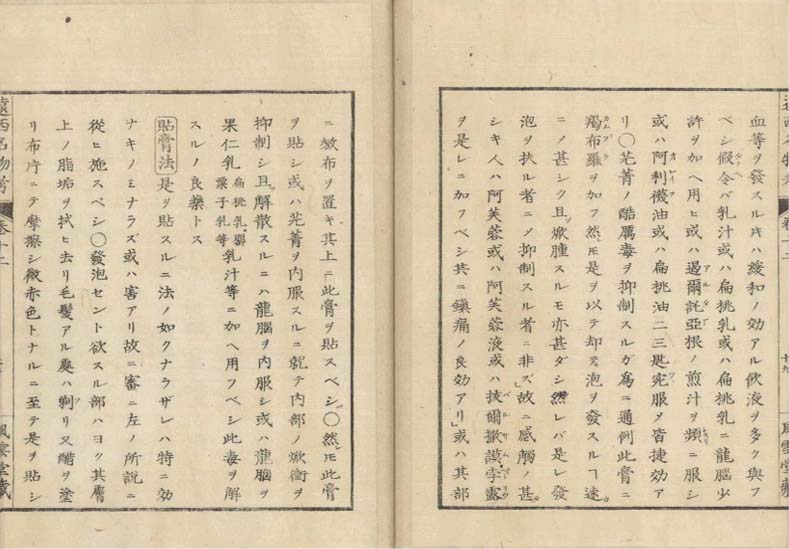 血等ヲ發スル𪜈ハ緩和ノ効アル飲液ヲ多ク與フ
ベシ假令バ乳汁或ハ扁桃乳或ハ扁桃乳ニ龍腦少
許ヲ加ヘ用ヒ或ハ過爾託亞根ノ煎汁ヲ頻ニ服シ
或ハ阿利襪油或ハ扁桃油二三匙宛服メ皆捷効ア
リ〇芫菁ノ酷厲毒ヲ抑制スルガ爲ニ通例此膏ニ
羯布羅ヲ加フ然𪜈是ヲ以テ却テ泡ヲ發スルヿ速
ニメ甚シク且ツ焮腫スルモ亦甚ダシ然レバ是レ發
泡ヲ扶ル者ニメ抑制スル者ニ非ズ」故ニ感觸ノ甚
シキ人ハ阿芙蓉或ハ阿芙蓉液或ハ抜爾撒謨孛露
ヲ是レニ加フベシ共ニ鎮痛ノ良効アリ」或ハ其部
遠西名物考 卷十二
風雲堂藏
ニ𣿖布ヲ置キ其上ニ此膏ヲ貼スベシ〇然𪜈此膏
ヲ貼シ或ハ芫菁ヲ内服スルニ就テ内部ノ焮衝ヲ
抑制シ且ツ解散スルニハ龍腦ヲ内服シ或ハ龍腦ヲ
果仁乳扁桃乳罌粟子乳等乳汁等ニ加ヘ用フベシ此毒ヲ解
スルノ良藥トス
貼膏法 是ヲ貼スルニ法ノ如クナラザレハ特ニ効
ナキノミナラズ或ハ害アリ故ニ審ニ左ノ所說ニ
從ヒ施スベシ〇發泡セント欲スル部ハヨク其膚
上ノ脂垢ヲ拭ヒ去リ毛髮アル處ハ剃リ又醋ヲ塗
リ布片ニテ摩擦シ微赤色トナルニ至テ是ヲ貼シ
遠西名物考 卷十二
風雲堂藏